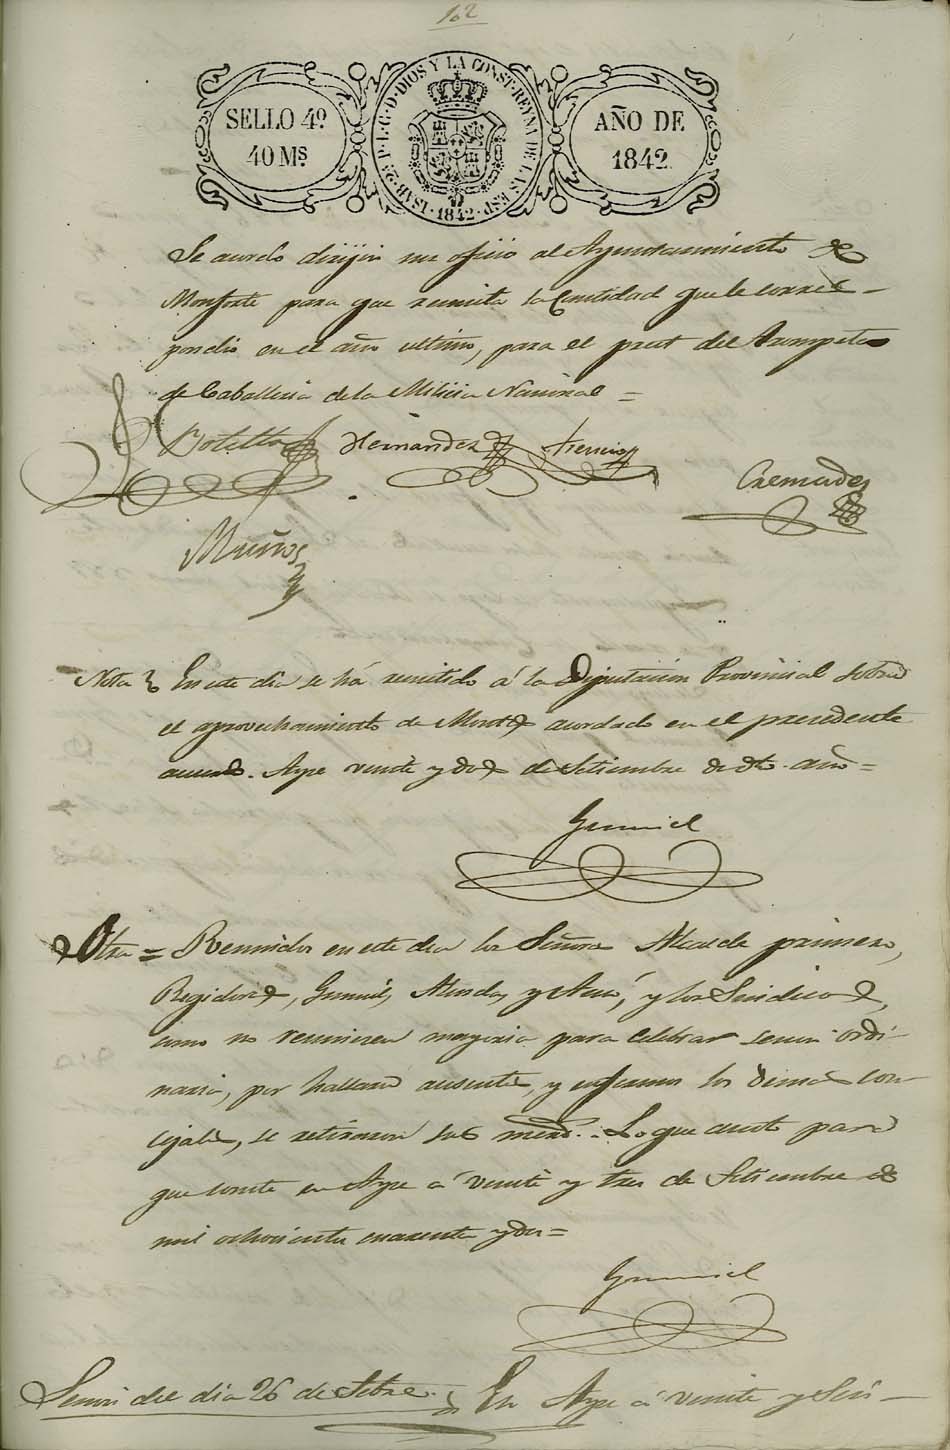 102
SELLO 4º
40 Ms
ISAB. 2ª P. L. G. D. DIOS Y LA CONST. REYNA DE LAS ESP.
1842
AÑO DE
1842.
Se acordo dirijir un oficio al Ayuntamiento de
Monforte para que remita la Cantidad que le corres-
pondio en el año ultimo, para el prest del Trompeta
de Caballeria de la Milicia Nacional =
Botella Hernandez Asencio
Cremades
Muños
Nota En este dia se há remitido á la Diputacion Provincial sobre
el aprovechamiento de Montes acordado en el precedente
acuerdo. Aspe veinte y dos de Setiembre de dho. año =
Gumiel
Otra = Reunidos en este dia los Señores Alcalde primero,
Regidores, Gumiel, y los Sindicos,
como no reuniesen mayoria para celebrar sesion ordi-
naria, por hallarse ausentes, y enfermos los demas con-
cejales, se retiraron sus mrds. Lo que anoto para
que conste en Aspe á veinte y tres de Setiembre de
mil ochocientos cuarenta y dos =
Gumiel
Sesion del dia 26 de Setbre. En Aspe á veinte y seis